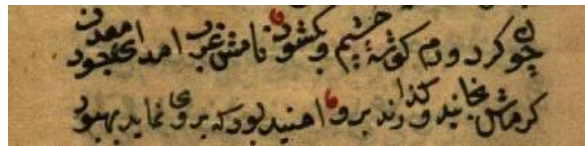 چو کرد ورم کوشهٔ چشم و بکشود نامش غرب امد ای معدن جود
کرماش بخایند و کذارند برو امید بود که بروی نماید بهبود